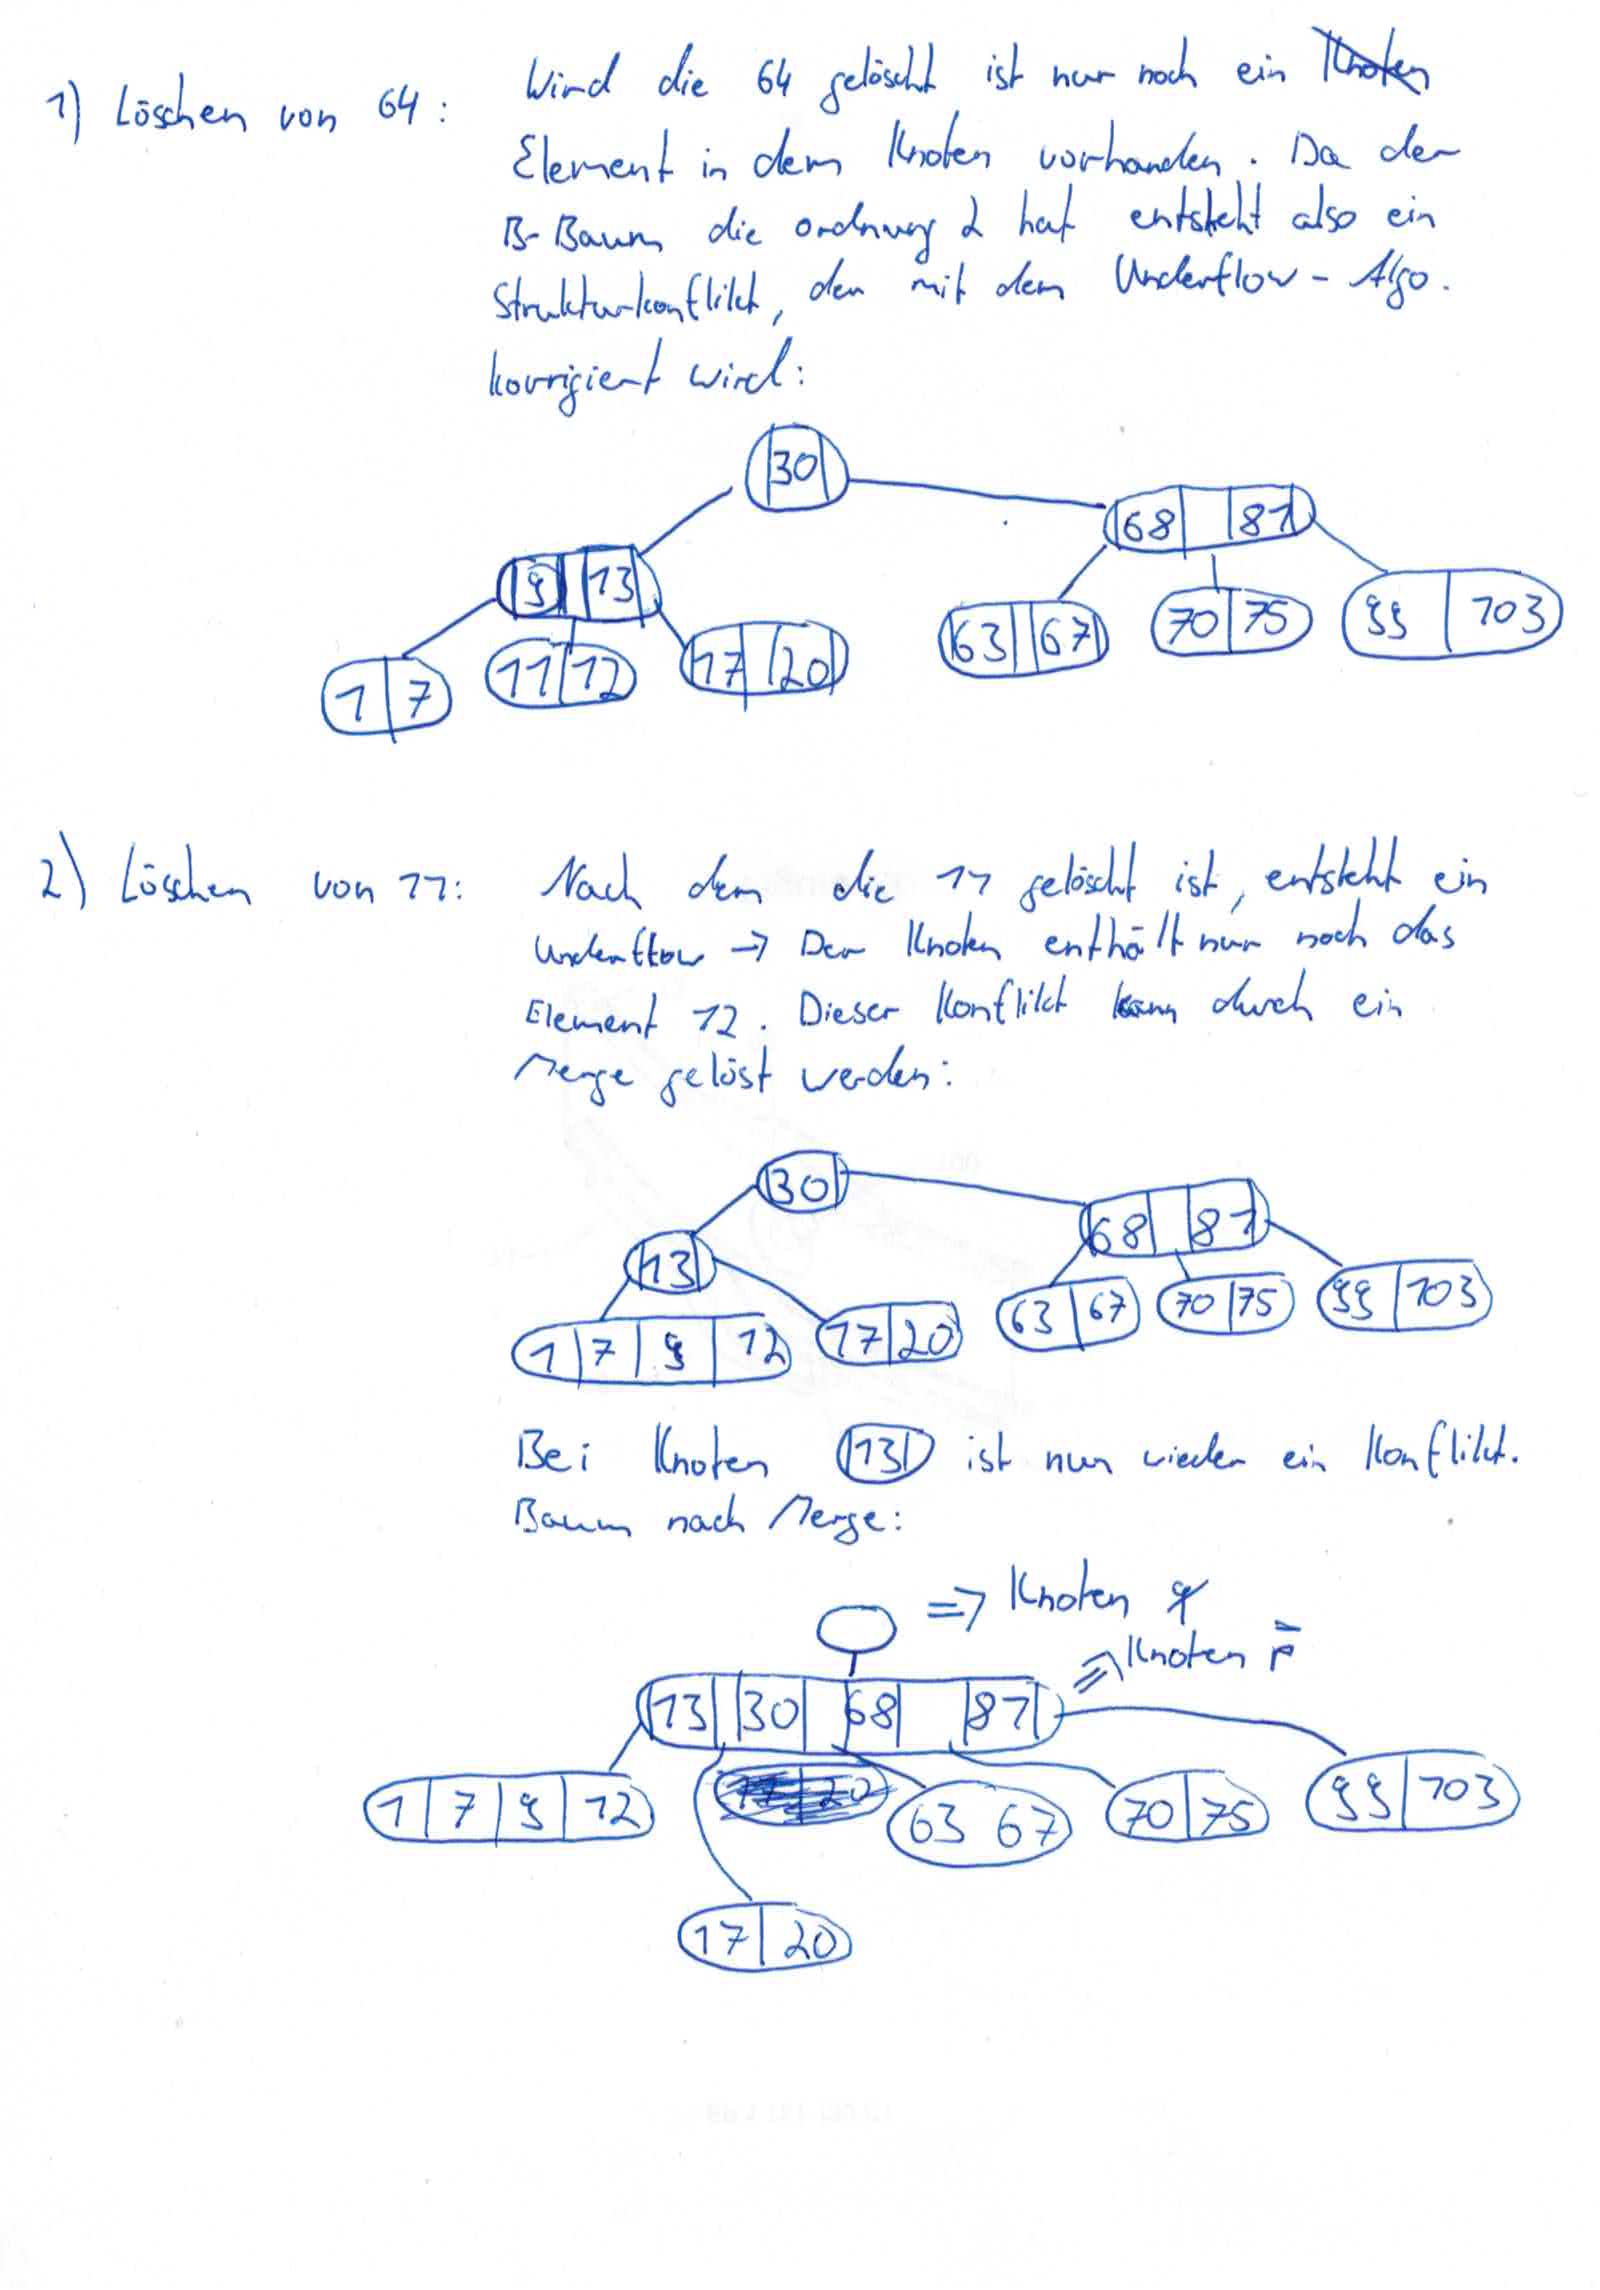 1) Löschen von 64: Wird die 64 gelöscht ist nur noch ein Knoten
Element in dem Knoten vorhanden. Da der
B-Baum die ordnung 2 hat entsteht also ein
Strukturkonflikt, der mit dem Underflow-Algo.
korrigiert wird:
30
68 87
9 13
63 67 70 75 99 103
1 7 11 12 17 20
2) Löschen von 11: Nach dem die 11 gelöscht ist, entsteht ein
Underflow → Der Knoten enthält nur noch das
Element 12. Dieser Konflikt kann durch ein
Merge gelöst werden:
30
68 87
13
63 67 70 75 99 103
1 7 9 12 17 20
Bei Knoten 13 ist nun wieder ein Konflikt.
Baum nach Merge:
=> Knoten q
=> Knoten p
13 30 68 87
1 7 9 12 17 20 63 67 70 75 99 103
17 20